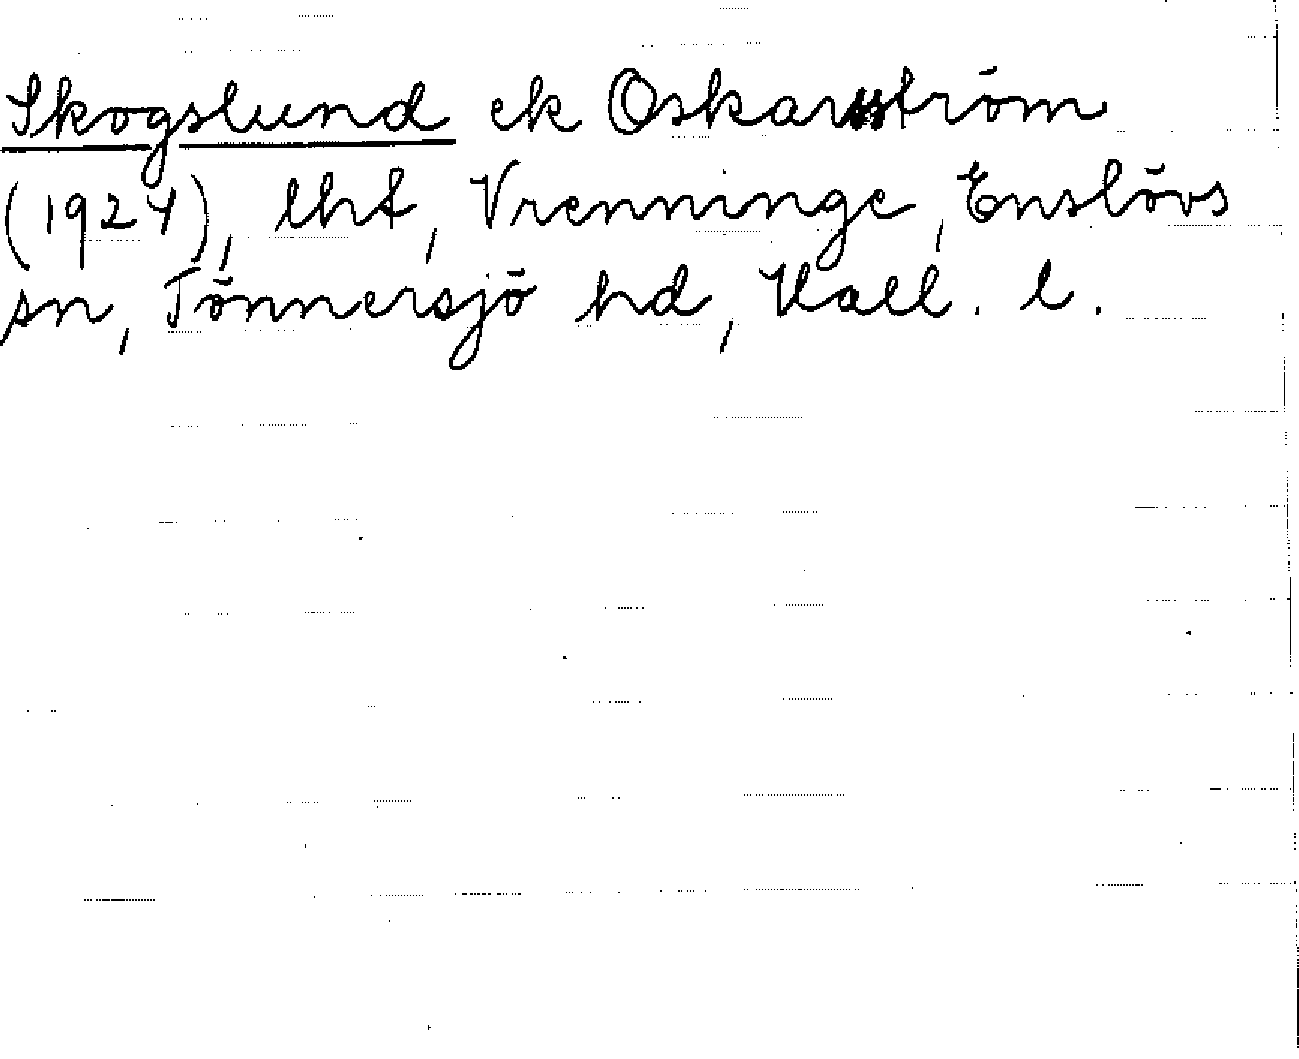 Skogslund ek Oskarström
(1924), lht, Vrenninge, Enslövs
sn, Tönnersjö hd, Hall. l.